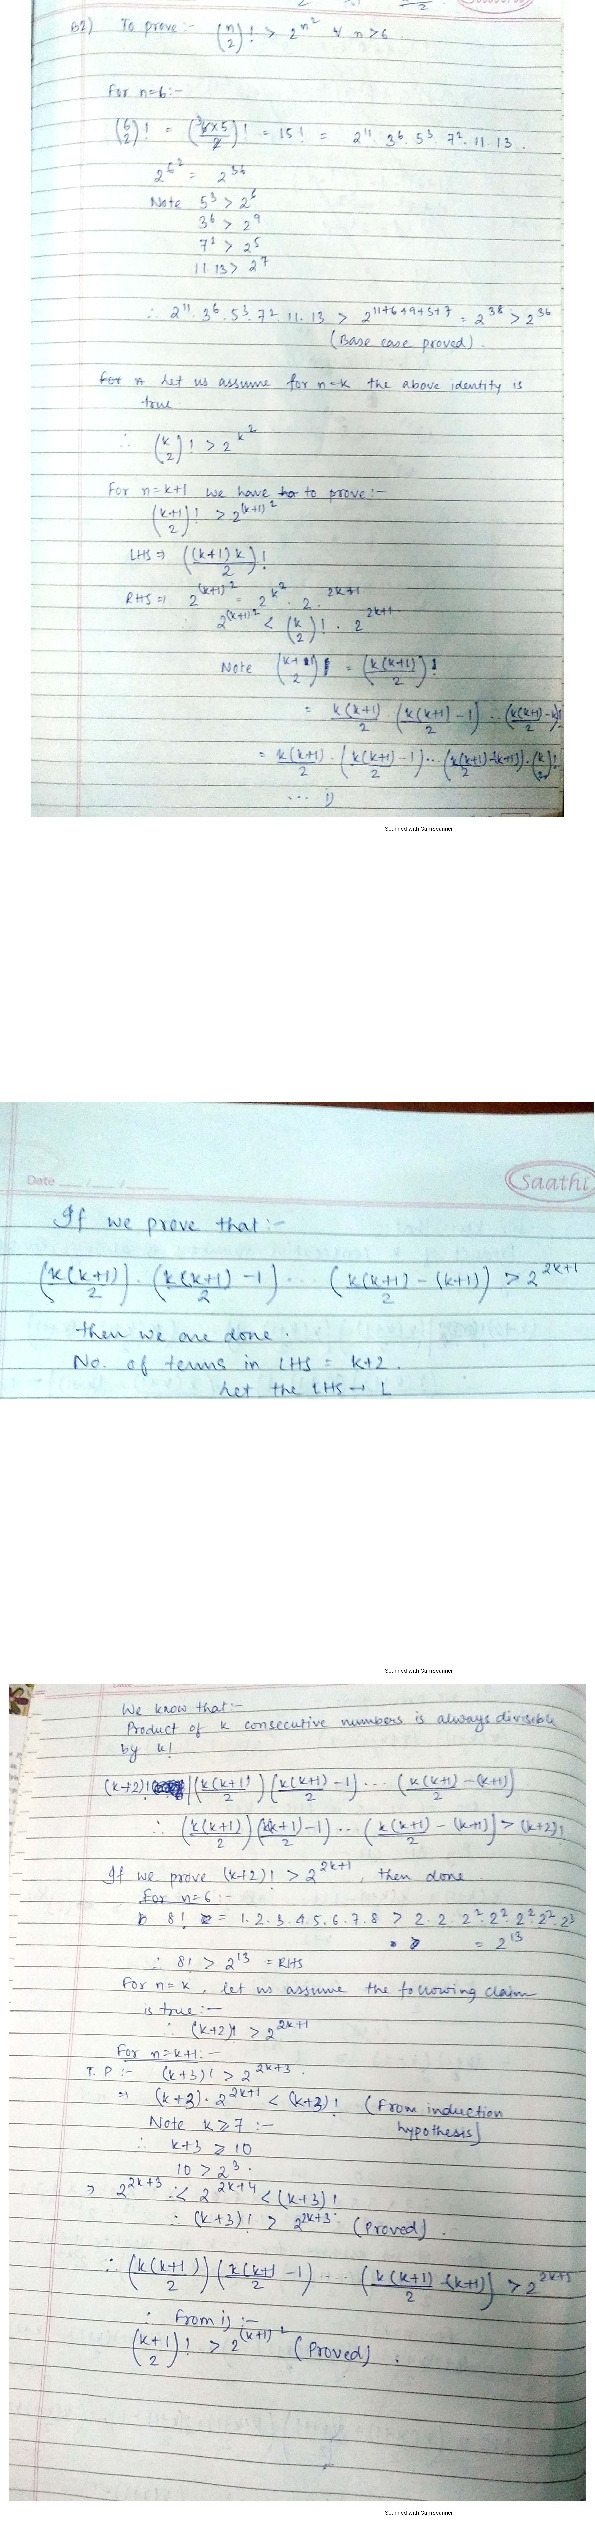 B2) To prove :- (n 2)! > 2^{n^2} ∀ n>6.
For n=6:-
(6 2)! = (6×5/2)! = 15! = 2^{11}. 3^6. 5^3. 7^2. 11. 13.
2^{6^2} = 2^{36}
Note 5^3 > 2^6
3^6 > 2^9
7^2 > 2^5
11.13 > 2^7
∴ 2^{11}. 3^6. 5^3. 7^2. 11. 13 > 2^{11+6+9+5+7} = 2^{38} > 2^{36}
(Base case proved).
Let us assume for n=k the above identity is
true
∴ (k 2)! > 2^{k^2}
For n=k+1 we have to prove:-
(k+1 2)! > 2^{(k+1)^2}
LHS ⇒ ((k+1)k/2)!
RHS ⇒ 2^{(k+1)^2} = 2^{k^2}. 2^{2k+1}
∴ 2^{(k+1)^2} < (k 2)! . 2^{2k+1}
Note (k+1 2)! = (k(k+1)/2)!
= k(k+1)/2 . (k(k+1)/2 - 1) ... (k(k+1)/2 - k)!
= k(k+1)/2 . (k(k+1)/2 - 1) ... (k(k+1)/2 - (k+1)) . (k 2)!
... 1)
Scanned with CamScanner
Date __/__/__
Saathi
If we prove that:-
(k(k+1)/2) . (k(k+1)/2 - 1) . (k(k+1)/2 - (k+1)) > 2^{2k+1}
then we are done.
No. of terms in LHS = k+2.
Let the LHS → L
Scanned with CamScanner
We know that:-
Product of k consecutive numbers is always divisible
by k!
(k+2)! | (k(k+1)/2) (k(k+1)/2 - 1) ... (k(k+1)/2 - (k+1))
∴ (k(k+1)/2) (k(k+1)/2 - 1) ... (k(k+1)/2 - (k+1)) > (k+2)!
If we prove (k+2)! > 2^{2k+1}, then done
For n=6:-
8! = 1.2.3.4.5.6.7.8 > 2. 2. 2^2. 2^2. 2^2. 2^2. 2^3
= 2^{13}
∴ 8! > 2^{13} = RHS
For n=k, let us assume the following claim
is true:-
∴ (k+2)! > 2^{2k+1}
For n=k+1:-
T.P:- (k+3)! > 2^{2k+3}.
⇒ (k+3). 2^{2k+1} < (k+3)! (From induction
hypothesis)
Note k ≥ 7:-
∴ k+3 ≥ 10
10 > 2^3.
⇒ 2^{2k+3} < 2^{2k+4} < (k+3)!
∴ (k+3)! > 2^{2k+3} (Proved).
∴ (k(k+1)/2) (k(k+1)/2 - 1) ... (k(k+1)/2 - (k+1)) > 2^{2k+1}
∴ From 1) :-
(k+1 2)! > 2^{(k+1)^2} (Proved).
Scanned with CamScanner